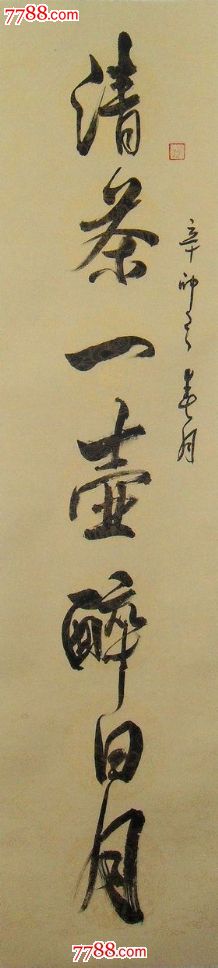 7788.com
清茶一壶醉日月
辛卯
月
7788.com